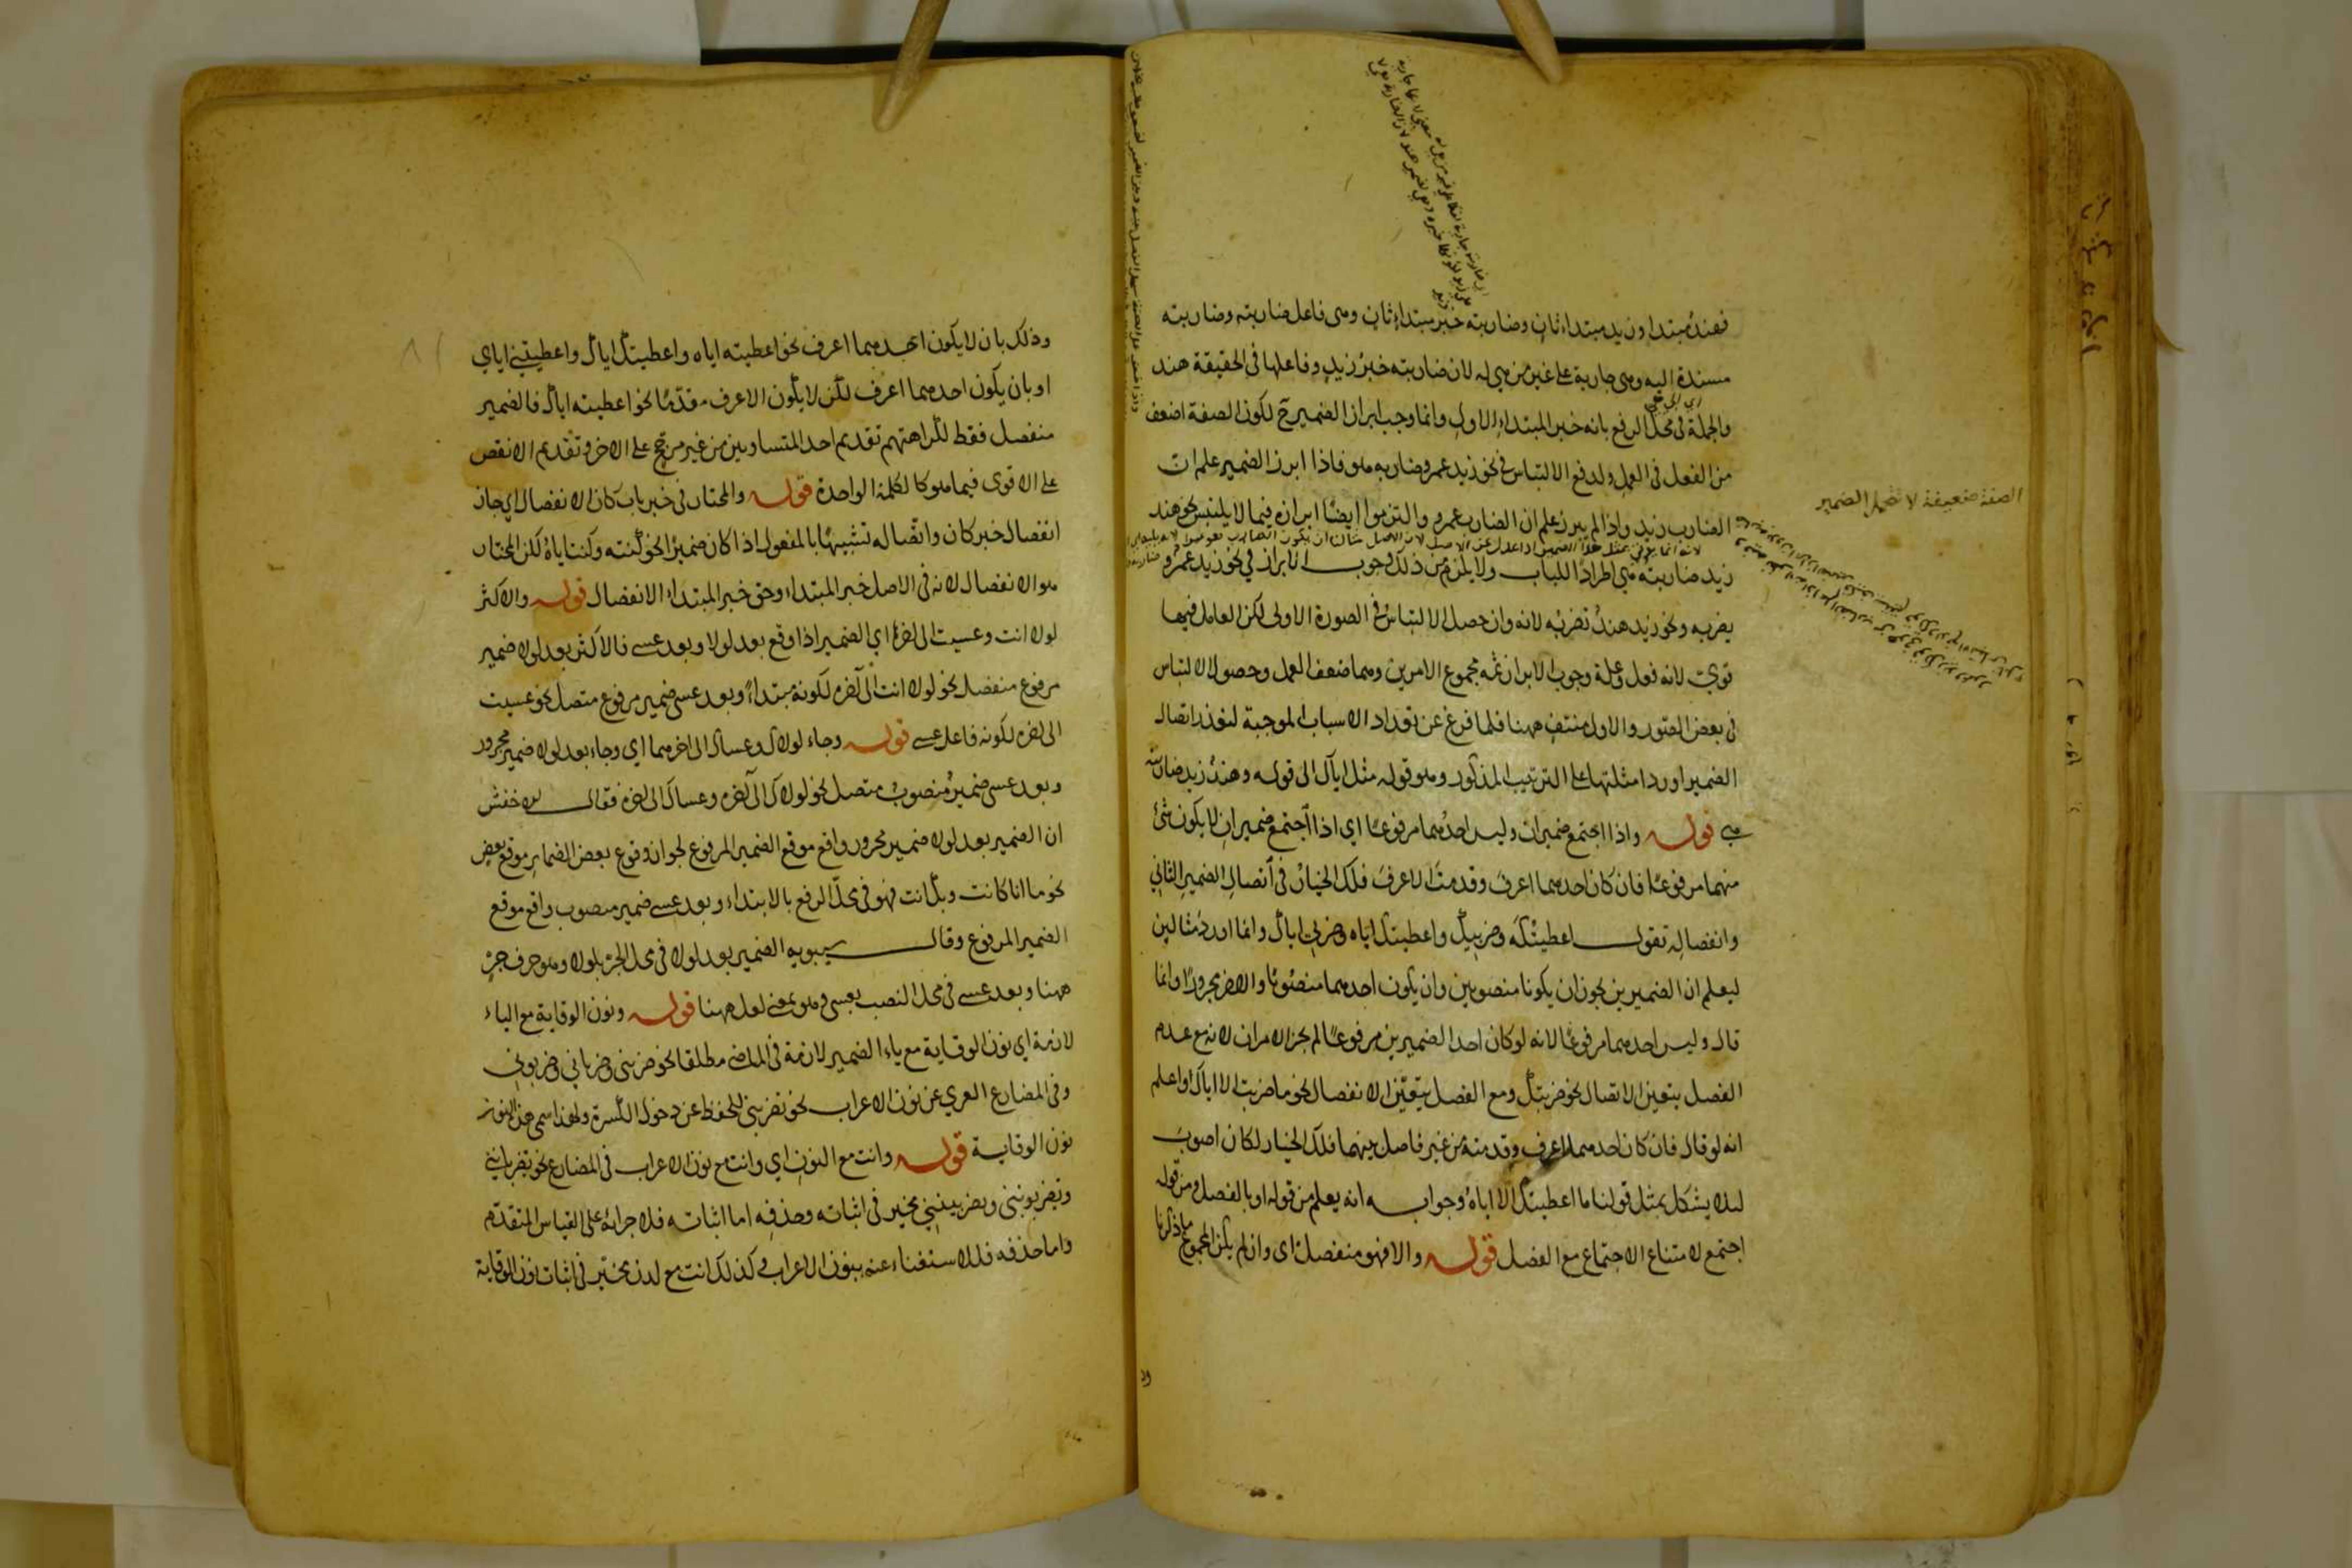 فهند مبتدا وزيد مبتداء ثان وضاربته خبر مبتداء ثان وهى فاعل ضاربته وضاربته
مسندة اليه وهى جارية على غير من هى له لان ضاربته خبر زيد وفاعلها في الحقيقة هند
والجملة فى محل الرفع بانه خبر المبتداء الاول وانما وجب ابراز الضمير ح لكون الصفة اضعف
من الفعل فى العمل ولدفع الالتباس في نحو زيد عمرو ضاربه هو فاذا ابرز الضمير علم ان
الضارب زيد واذا لم يبرز علم ان الضارب عمرو والتزموا ايضا ابرازه فيما لا يلتبس نحو هند
زيد ضاربته هي اطرادا للباب ولا يلزم من ذلك وجوب الابراز في نحو زيد عمرو
يضربه ونحو زيد هند تضربه لانه وان حصل الالتباس في الصورة الاولى لكن العامل فيهما
قوى لانه فعل وعلة وجوب الابراز ثمه مجموع الامرين وهما ضعف العمل وحصول الالتباس
فى بعض الصور والاول منتف ههنا فلما فرغ عن تعداد الاسباب الموجبة لتعذر اتصال
الضمير اورد امثلتها على الترتيب المذكور وهو قوله مثل اياك الى قوله وهند زيد ضاربته
هى قوله واذا اجتمع ضميران وليس احدهما مرفوعا اي اذا اجتمع ضميران لا يكون شئ
منهما مرفوعا فان كان احدهما اعرف وقدمت الاعرف فلك الخيار فى اتصال الضمير الثاني
وانفصاله تقول اعطيتكه وضربيك واعطيتك اياه وضربي اياك وانما اورد مثالين
ليعلم ان الضميرين يجوز ان يكونا منصوبين وان يكون احدهما منصوبا والاخر مجرورا وانما
قال وليس احدهما مرفوعا لانه لو كان احد الضميرين مرفوعا لم يجز الامران لانه مع عدم
الفصل يتعين الاتصال نحو ضربتك ومع الفصل يتعين الانفصال نحو ما ضربت الا اياك واعلم
انه لو قال فان كان احدهما اعرف وقدمته من غير فاصل بينهما فلك الخيار لكان اصوب
لئلا يشكل بمثل قولنا ما اعطيتك الا اياه وجوابه انه يعلم من قوله او بالفصل ومن قوله
اجتمع لامتناع الاجتماع مع الفصل قوله والا فهو منفصل اى وان لم يكن المجموع ما ذكرنا
الصفة ضعيفة لا تتحمل الضمير
وذلك بان لا يكون احدهما اعرف نحو اعطيته اياه واعطيتك اياك واعطيتني اياي
او بان يكون احدهما اعرف لكن لا يكون الاعرف مقدما نحو اعطيته اياك فالضمير
منفصل فقط لكراهتهم تقديم احد المتساويين من غير مرجح على الاخر وتقديم الانقص
على الاقوى فيما هو كالكلمة الواحدة قوله والمختار فى خبر باب كان الانفصال اي جاز
انفصال خبر كان واتصاله تشبيها بالمفعول اذا كان ضميرا نحو كنته وكنت اياه لكن المختار
هو الانفصال لانه فى الاصل خبر المبتداء وحق خبر المبتداء الانفصال قوله والاكثر
لولا انت وعسيت الى اخره اي الضمير اذا وقع بعد لولا وبعد عسى فالاكثر بعد لولا ضمير
مرفوع منفصل نحو لولا انت الى اخره لكونه مبتداء وبعد عسى ضمير مرفوع متصل نحو عسيت
الى اخره لكونه فاعل عسى قوله وجاء لولاك وعساك الى اخرهما اي وجاء بعد لولا ضمير مجرور
وبعد عسى ضمير منصوب متصل نحو لولاك الى اخره وعساك الى اخره فقال الاخفش
ان الضمير بعد لولا ضمير مجرور واقع موقع الضمير المرفوع لجواز وقوع بعض الضماير موقع بعض
نحو ما انا كانت وبك انت فهو فى محل الرفع بالابتداء وبعد عسى ضمير منصوب واقع موقع
الضمير المرفوع وقال سيبويه الضمير بعد لولا فى محل الجر بلولا وهو حرف جر
ههنا وبعد عسى فى محل النصب بعسى وهو بمعنى لعل ههنا قوله ونون الوقاية مع الياء
لازمة اى نون الوقاية مع ياء الضمير لازمة فى الماضى مطلقا نحو ضربنى وضرباني وضربوني
وفى المضارع العري عن نون الاعراب نحو تضربني للحفظ عن دخول الكسرة ولهذا سمى هذا النون
نون الوقاية قوله وانت مع النون اي وانت مع نون الاعراب فى المضارع نحو تضربانني
وتضربوننى وتضربينني مخير فى اثباته وحذفه اما اثباته فلاجرائه على القياس المتقدم
واما حذفه فللاستغناء عنه بنون الاعراب وكذلك انت مع لدن مخير فى اثبات نون الوقاية